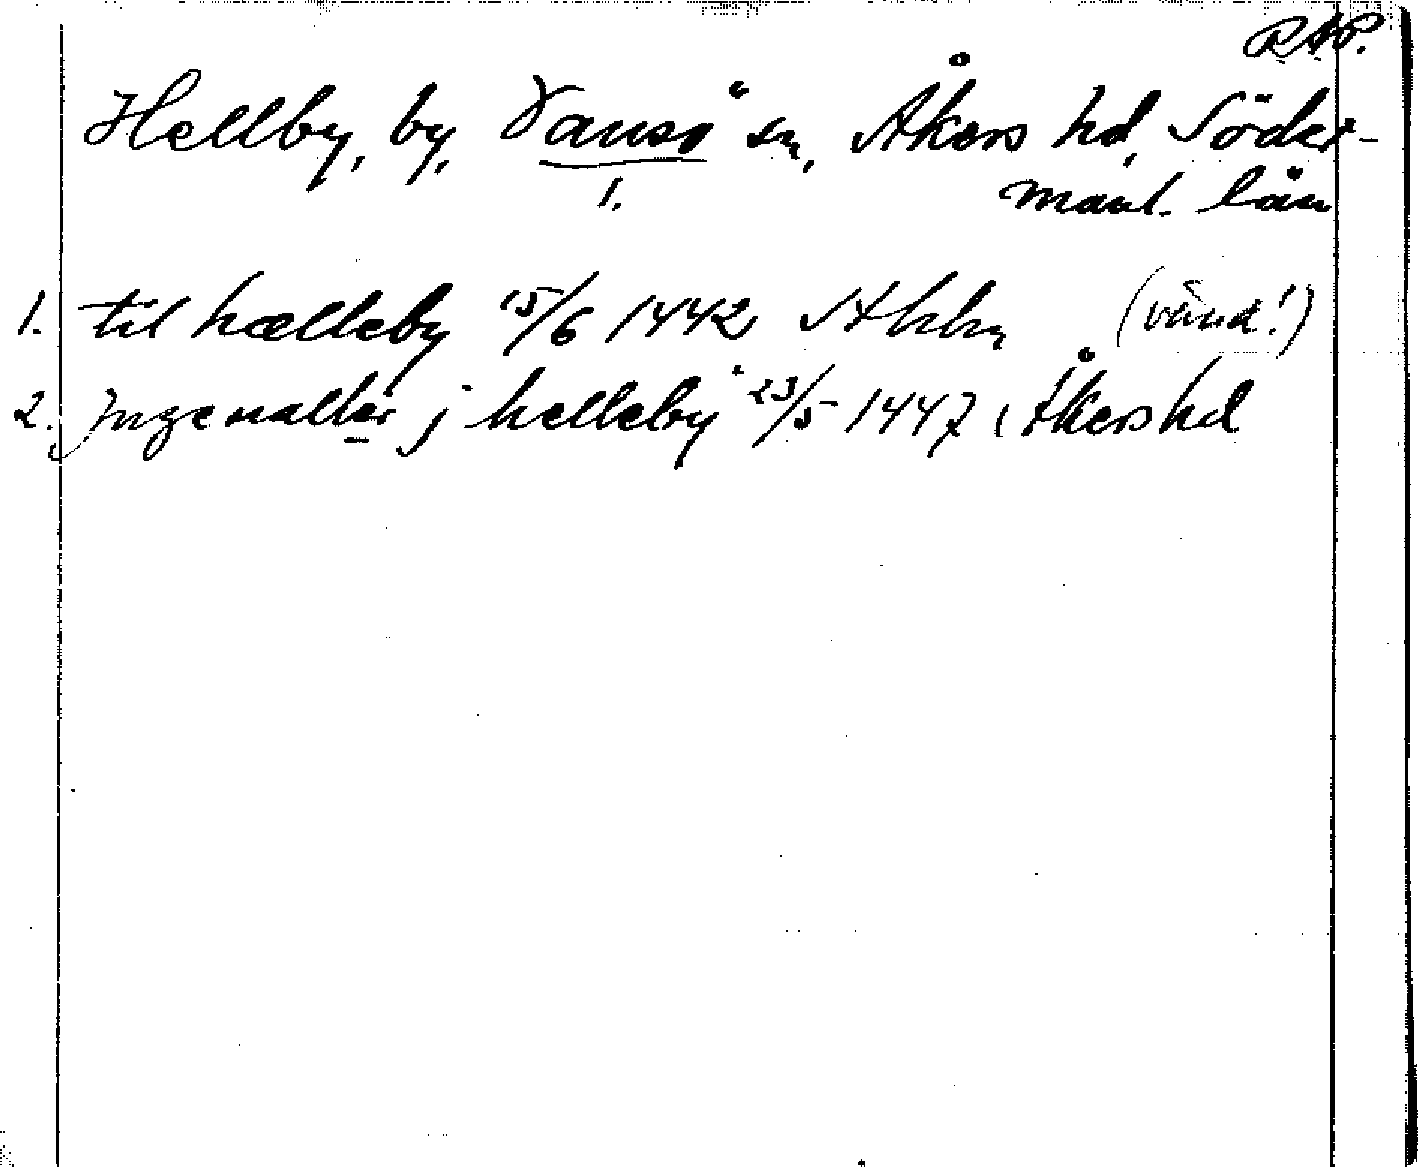 RAP.
Hellby, by, Vansö sn, Åkers hd, Söder-
1. manl. län
1. til hælleby 15/6 1442 Sthlm (vänd!)
2. jngevalter j helleby 23/5 1447, Åkers hd